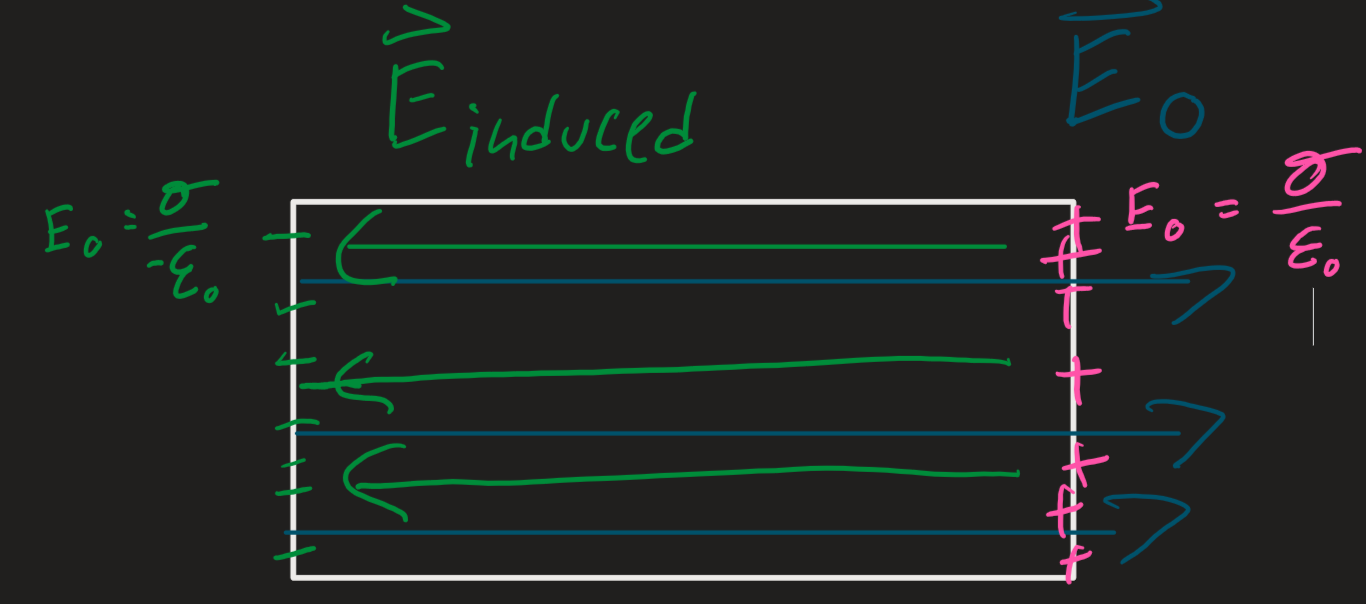 E⃗ induced
E⃗ 0
E₀ = σ / -ε₀
E₀ = σ / ε₀
- - - - - - - -
+ + + + + + +